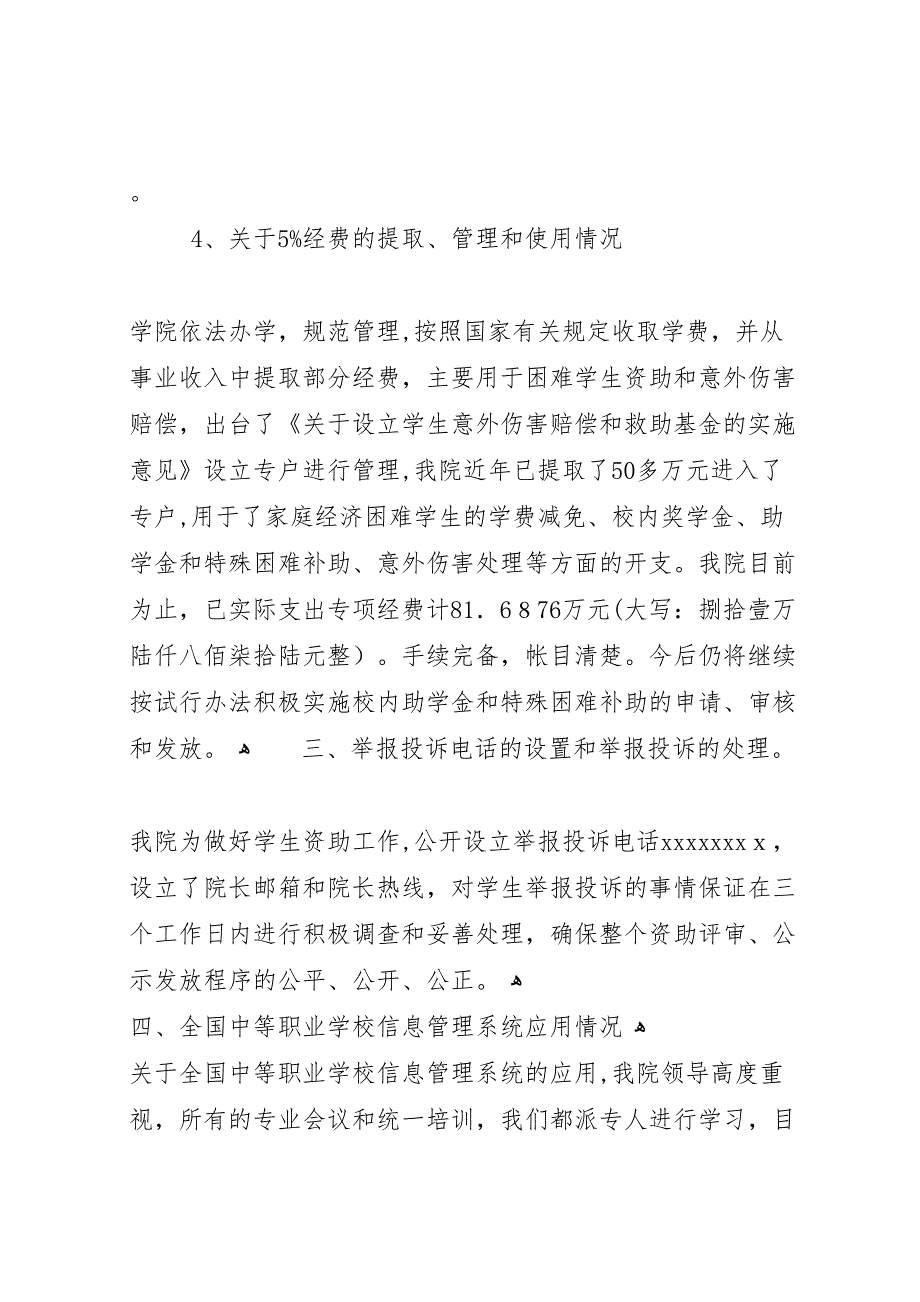 。
4、关于5%经费的提取、管理和使用情况
学院依法办学，规范管理,按照国家有关规定收取学费，并从
事业收入中提取部分经费，主要用于困难学生资助和意外伤害
赔偿，出台了《关于设立学生意外伤害赔偿和救助基金的实施
意见》设立专户进行管理,我院近年已提取了50多万元进入了
专户,用于了家庭经济困难学生的学费减免、校内奖学金、助
学金和特殊困难补助、意外伤害处理等方面的开支。我院目前
为止，已实际支出专项经费计81．６８76万元(大写：捌拾壹万
陆仟八佰柒拾陆元整）。手续完备，帐目清楚。今后仍将继续
按试行办法积极实施校内助学金和特殊困难补助的申请、审核
和发放。 ﻬ 三、举报投诉电话的设置和举报投诉的处理。
我院为做好学生资助工作,公开设立举报投诉电话xxxxxxxｘ，
设立了院长邮箱和院长热线，对学生举报投诉的事情保证在三
个工作日内进行积极调查和妥善处理，确保整个资助评审、公
示发放程序的公平、公开、公正。 ﻬ
四、全国中等职业学校信息管理系统应用情况 ﻬ
关于全国中等职业学校信息管理系统的应用,我院领导高度重
视，所有的专业会议和统一培训，我们都派专人进行学习，目